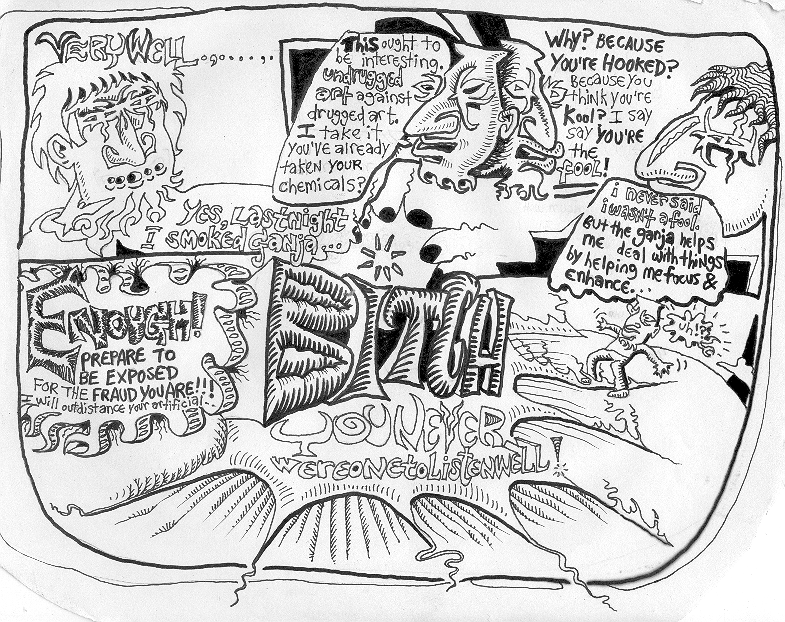 VERY WELL.........
THIS ought to
be interesting.
undrugged
art against
drugged art.
I take it
you've already
taken YOUR
chemicals?
WHY? BECAUSE
YOU'RE HOOKED?
BECAUSE YOU
THINK YOU'RE
Kool? I SAY
SAY YOU'RE
the
FOOL!
Yes, Last night
I smoked GANJA...
i never said
i wasn't a fool.
But the ganja helps
me deal with things
by helping me focus &
enhance...
ENOUGH!
PREPARE TO
BE EXPOSED
FOR THE FRAUD YOU ARE!!!
I will outdistance your artificial-
BITCH
YOU NEVER
WERE ONE to LISTEN WELL!
uh!?